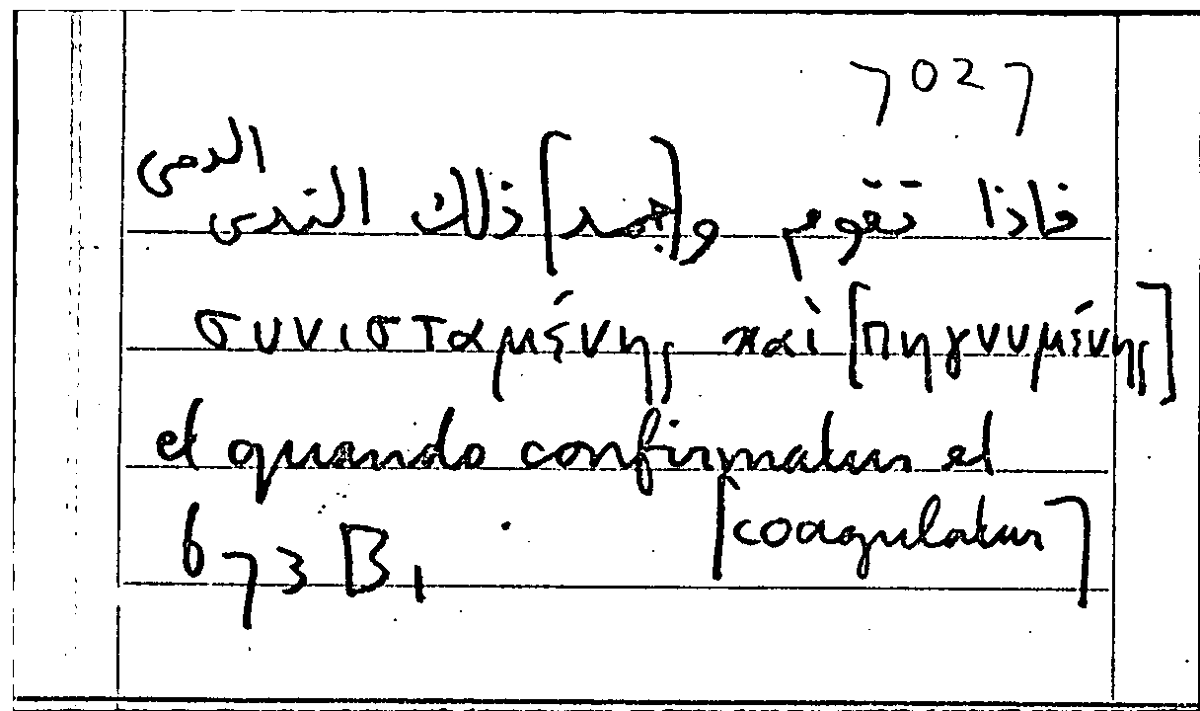 7027
الدمى
فاذا تقوم و[جمد] ذلك الندى
συνισταμένης καὶ [πηγνυμένης]
et quando confirmatur et
[coagulatur]
673 B,